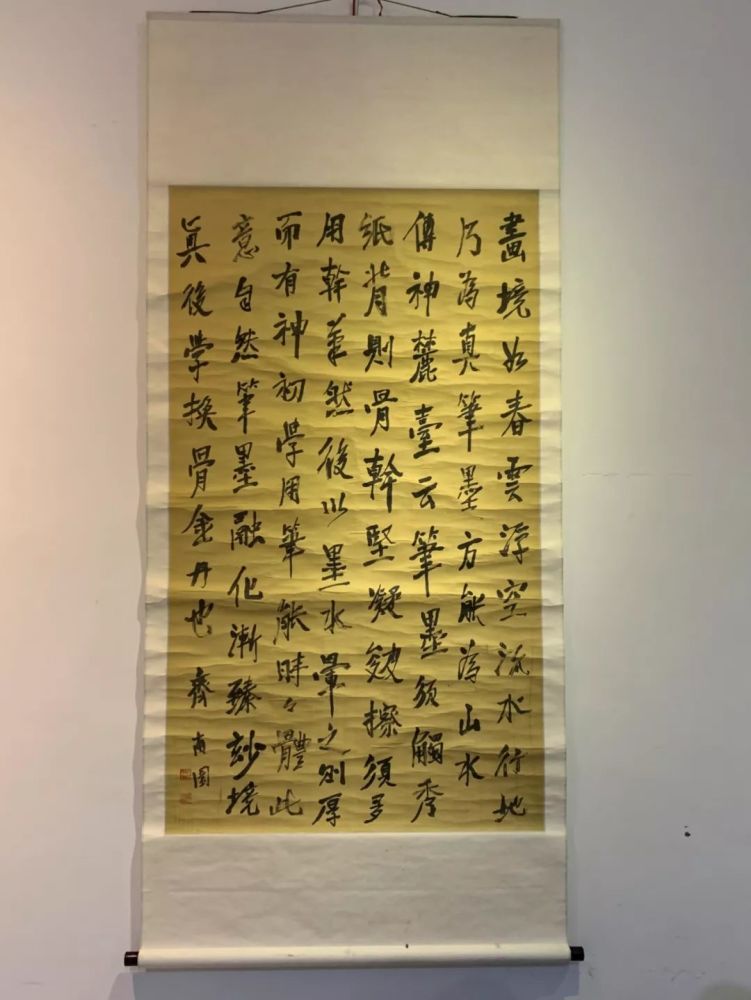 畫境如春雲浮空流水行地
乃為真筆墨方能為山水
傳神麓臺云筆墨須觸秀
紙背則骨幹堅凝皴擦須多
用幹筆然後以墨水暈之則厚
而有神初學用筆能時々體此
意自然筆墨融化漸臻妙境
真後學換骨金丹也 齊
南園